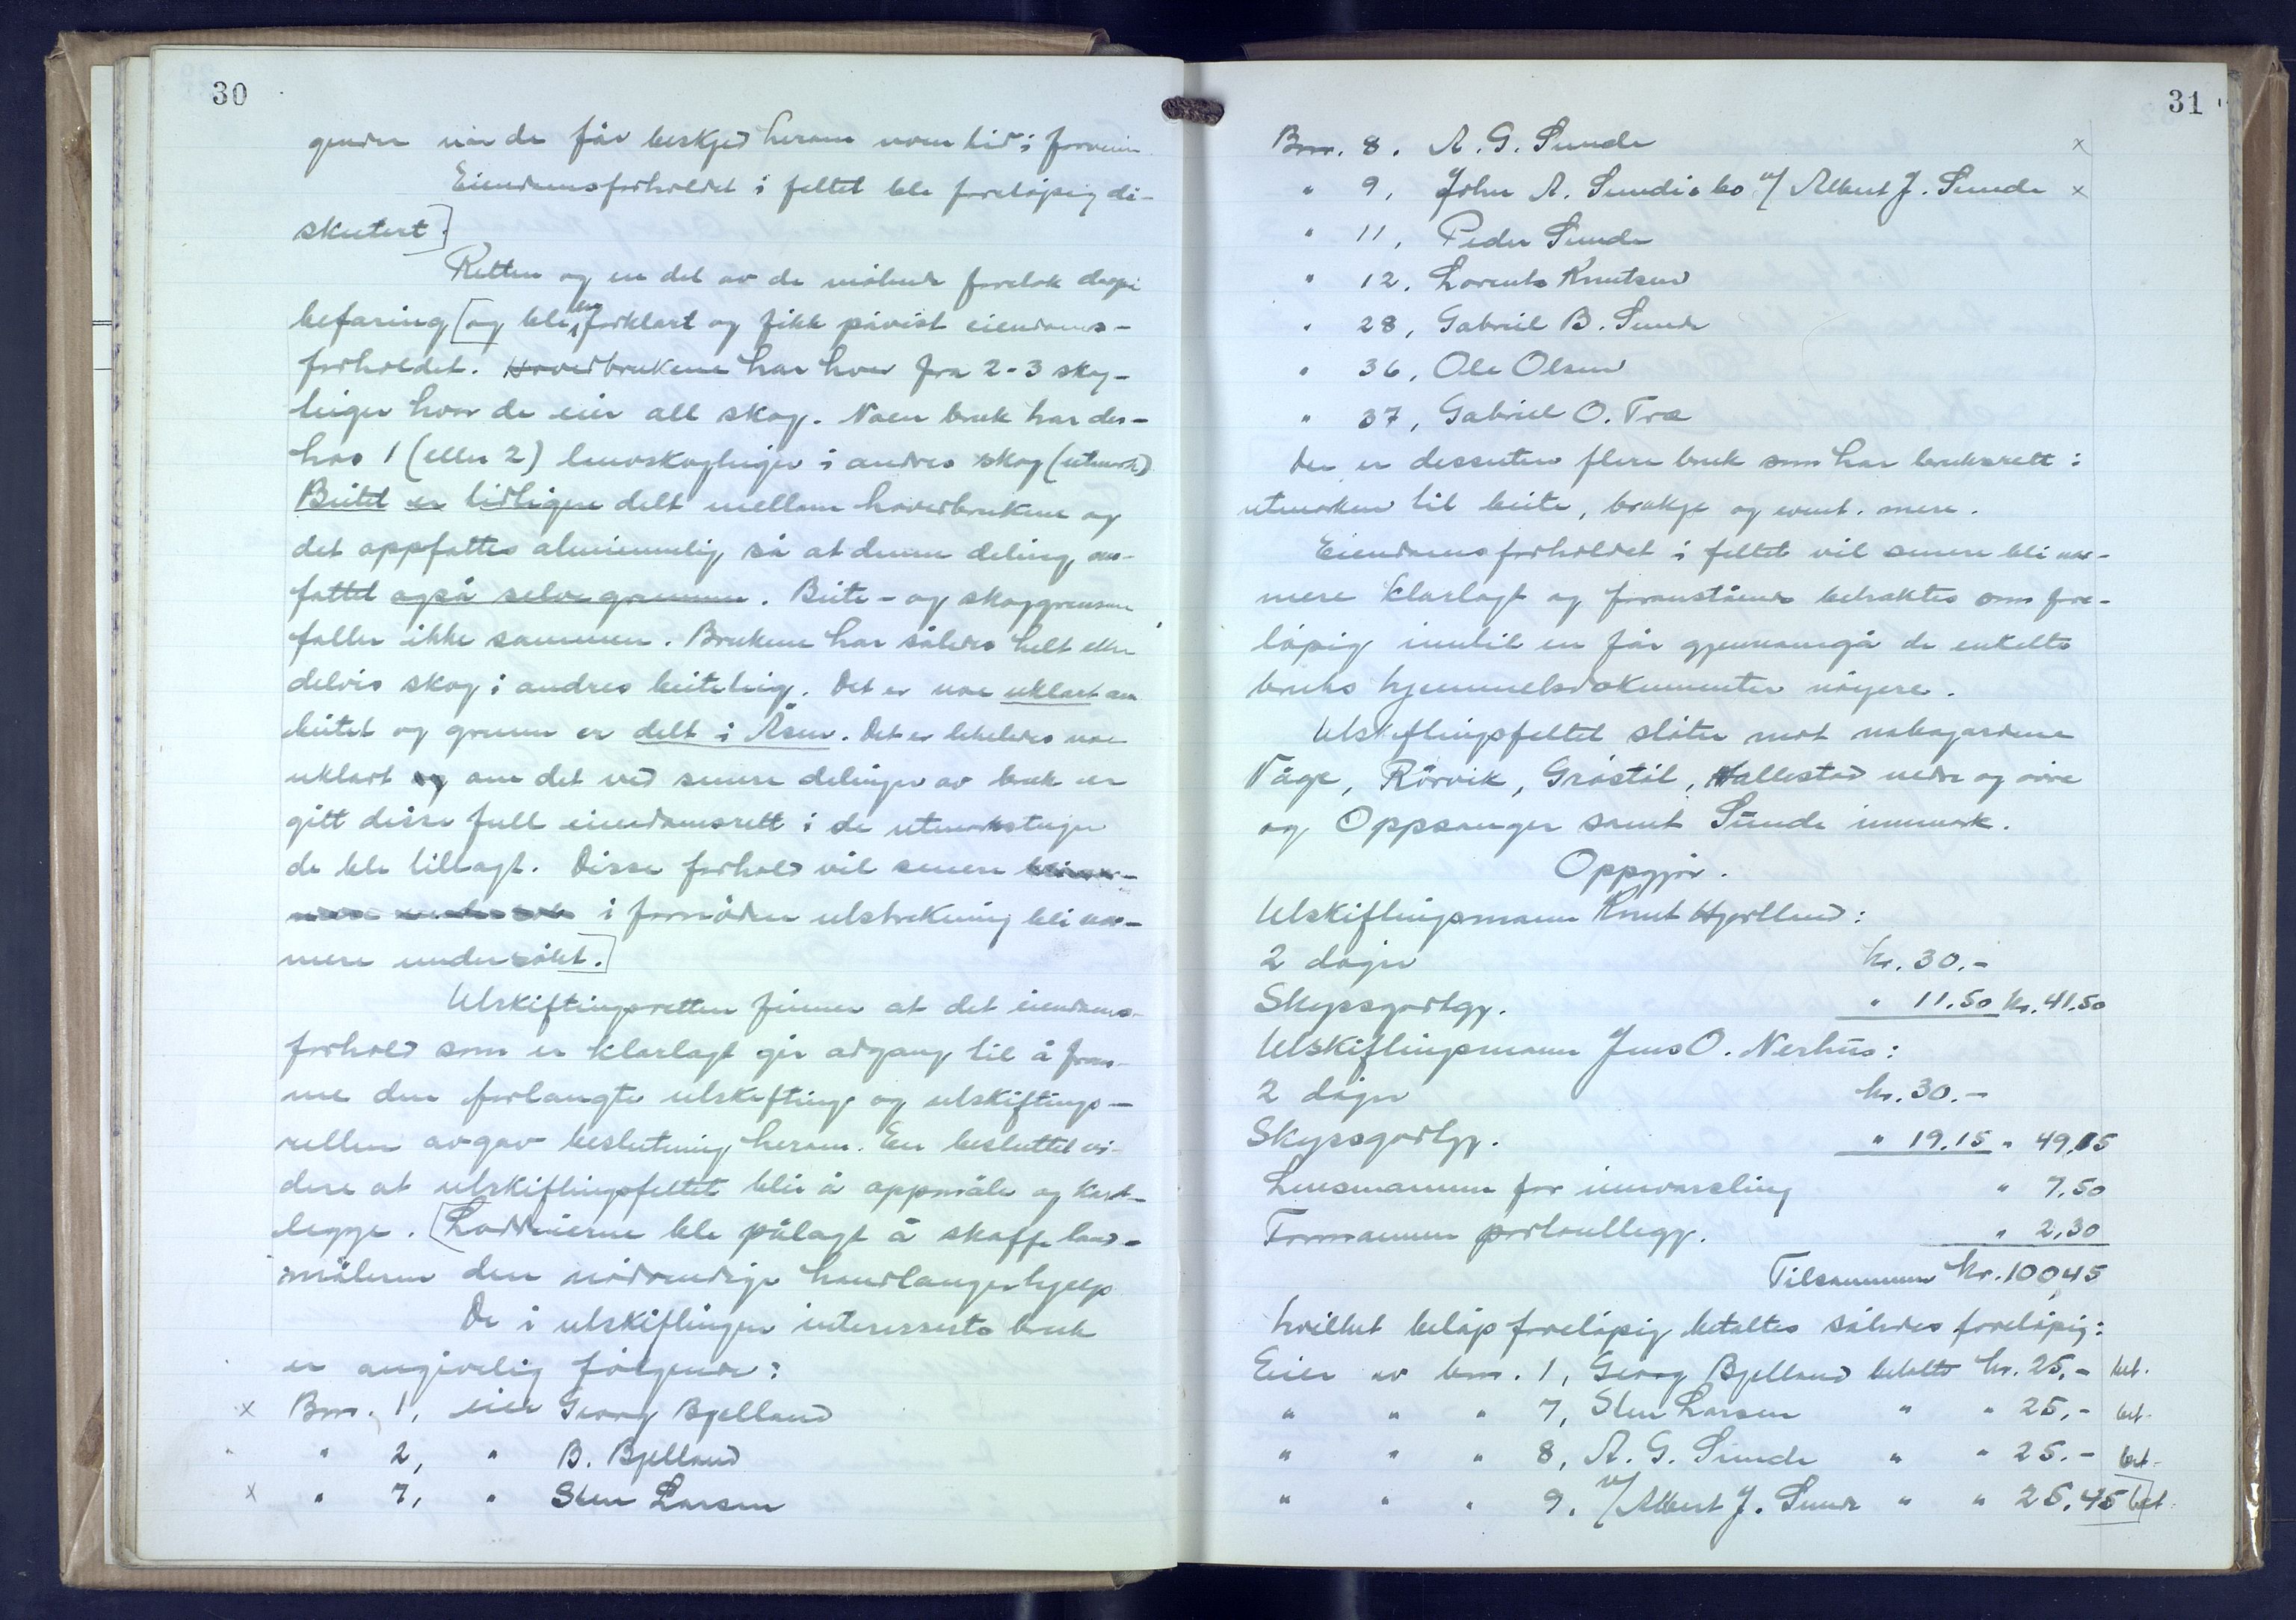 30
gender når de får beskjed herom noen tid i forveien
Eiendomsforholdet i feltet ble foreløpig di-
skutert.]
Retten og en del av de møtende foretok derpå
befaring [og ble forklart og fikk påvist eiendoms-
forholdet. Hovedbrukene har hver fra 2-3 skog-
teiger hvor de eier all skog. Noen bruk har des-
hos 1 (eller 2) lauvskogteiger i andres skog (utmark)
Beitet er tidligere delt mellom hovedbrukene og
det oppfattes alminnelig så at denne deling om-
fattet også selve grunnen. Beite- og skoggrensene
faller ikke sammen. Brukene har således helt eller
delvis skog i andres beiteteig. Det er noe uklart om
beitet og grunn er delt i Åsen. Det er likeledes noe
uklart og om det ved senere delinger av bruk er
gitt disse full eiendomsrett i de utmarksteiger
de ble tillagt. Disse forhold vil senere
i fornøden utstrekning bli nær-
mere undersøkt.]
Utskiftingsretten finner at det eiendoms-
forhold som er klarlagt gir adgang til å frem-
me den forlangte utskifting og utskiftings-
retten avgav beslutning herom. En besluttet vi-
dere at utskiftingsfeltet blir å oppmåle og kart-
legge. [Loddeierne ble pålagt å skaffe land-
måleren den nødvendige handlangerhjelp
De i utskiftingen interesserte bruk
er angivelig følgende:
x Bnr. 1, eier Georg Bjelland
" 2, " B. Bjelland
x " 7, " Sten Larsen
31
Bnr. 8. A. G. Sunde x
" 9, John A. Sunde's bo v/ Albert J. Sunde x
" 11, Peder Sunde
" 12. Lorents Knutsen
" 28, Gabriel B. Sunde
" 36, Ole Olsen
" 37, Gabriel O. Træ
Der er dessuten flere bruk som har bruksrett i
utmarken til beite, brakje og event. mere.
Eiendomsforholdet i feltet vil senere bli nær-
mere klarlagt og foranstående betraktes som fore-
løpig inntil en får gjennomgå de enkelte
bruks hjemmelsdokumenter nøyere.
Utskiftingsfeltet støter mot nabogardene
Våge, Rørvik, Gråstøl, Hallestad nedre og øvre
og Oppsanger samt Sunde innmark.
Oppgjør.
Utskiftingsmann Knut Hjortland:
2 dager kr. 30.-
Skyssgodtgj. " 11.50 kr. 41.50
Utskiftingsmann Jens O. Nerhus:
2 dager kr. 30.-
Skyssgodtgj. " 19.15 " 49.15
Lensmannen for innvarsling " 7,50
Formannen portoutlegg. " 2,30
Tilsammen kr. 100,45
hvilket beløp foreløpig betaltes således foreløpig:
Eier av bnr. 1, Georg Bjelland betalte kr. 25,- bet.
" " " 7, Sten Larsen " " 25,- bet.
" " " 8, A. G. Sunde " " 25.- bet.
" " " 9. v/ Albert J. Sunde " " 25,45] bet.